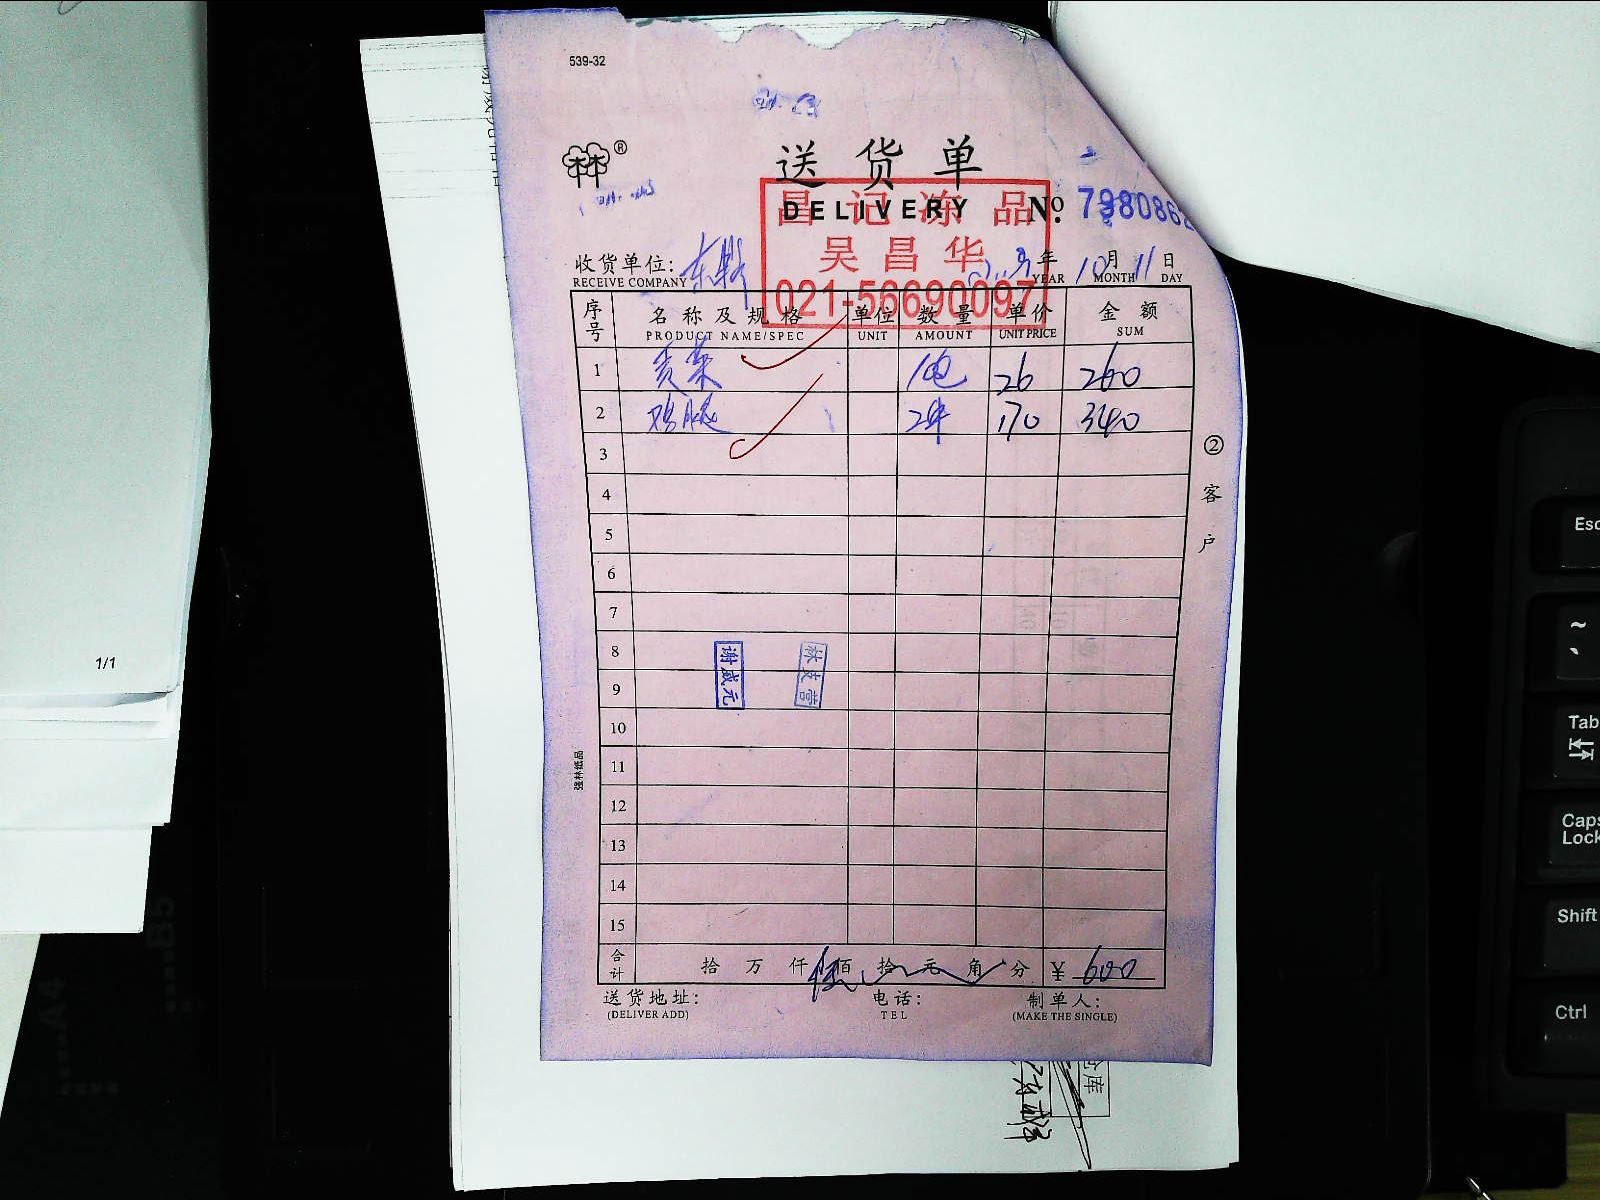 539-32
送货单
DELIVERY
昌记冻品
吴昌华
021-56690097
No. 798086
收货单位:
RECEIVE COMPANY
年 10月 11日
YEAR MONTH DAY
序号 名称及规格 单位 数量 单价 金额
PRODUCT NAME/SPEC UNIT AMOUNT UNIT PRICE SUM
1 贡菜 10包 26 260
2 鸡腿 2件 170 340
3
4
5
6
7
8
9
10
11
12
13
14
15
谢威元
②客户
强林纸品
合计 拾 万 仟 陆佰 拾 元 角 分 ¥ 600
送货地址: 电话: 制单人:
(DELIVER ADD) TEL (MAKE THE SINGLE)
仓库
1/1
B5
A4
Esc
~
`
Tab
Caps Lock
Shift
Ctrl